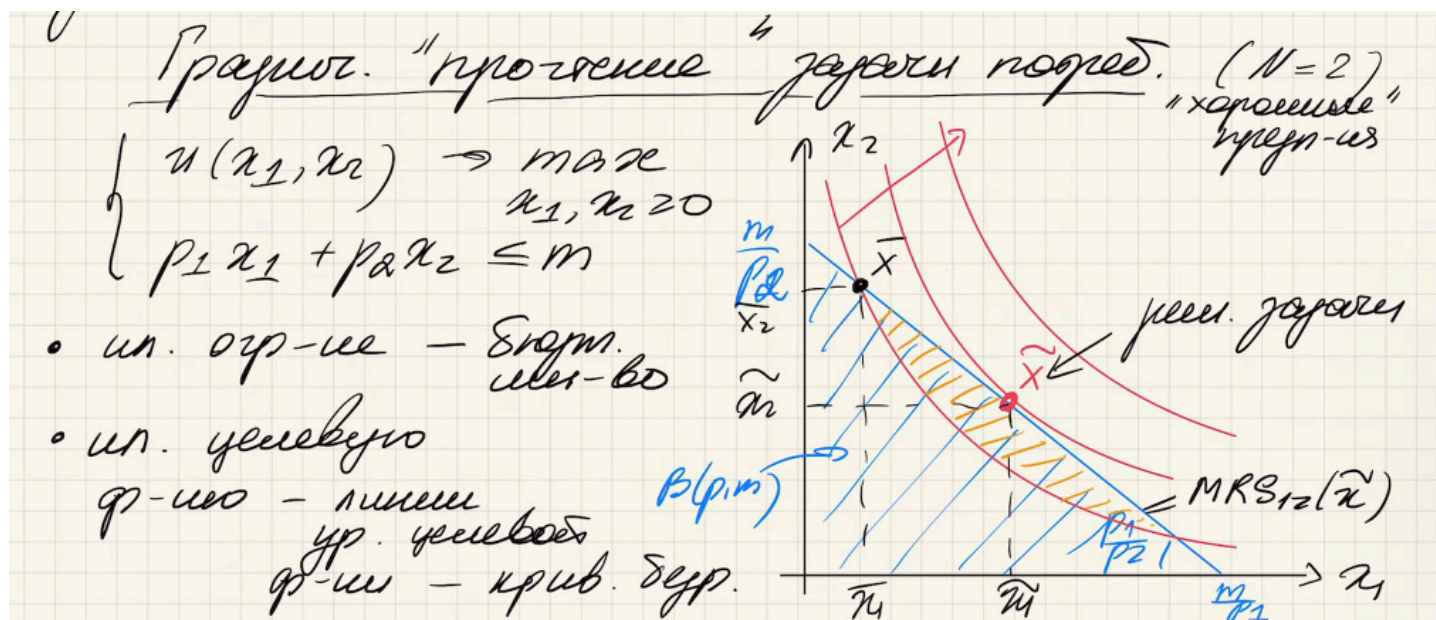 Графич. "прочтение" задачи потреб. (N=2)
"хорошие"
предп-ия
u(x₁, x₂) → max
x₁, x₂ ≥ 0
p₁x₁ + p₂x₂ ≤ m
• ил. огр-ие – бюдж.
мн-во
• ил. целевую
ф-ию – линии
ур. целевой
ф-ии – крив. безр.
x₂
m/p₂
x̄
x̄₂
реш. задачи
x̃
x̃₂
B(p,m)
MRS₁₂(x̃)
p₁/p₂
x̄₁
x̃₁
m/p₁
x₁